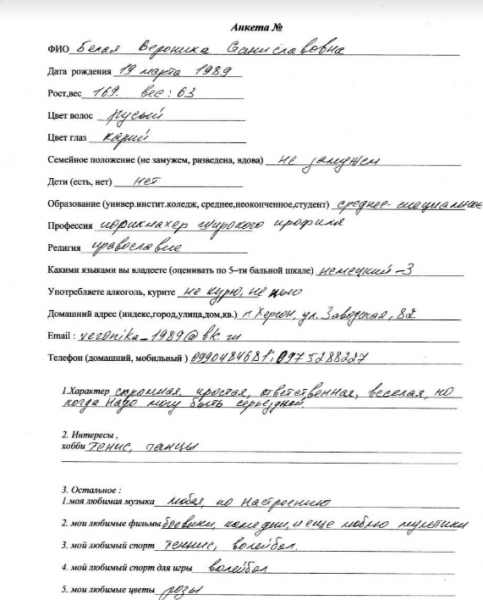 Анкета №
ФИО Белая Вероника Станиславовна
Дата рождения 19 марта 1989
Рост,вес 169. вес: 63
Цвет волос русый
Цвет глаз карий
Семейное положение (не замужем, разведена, вдова) не замужем
Дети (есть, нет) нет
Образование (универ.инстит.коледж, среднее,неоконченное,студент) среднее-специальное
Профессия парикмахер широкого профиля
Религия православие
Какими языками вы владеете (оценивать по 5-ти бальной шкале) немецкий-3
Употребляете алкоголь, курите не курю, не пью
Домашний адрес (индекс,город,улица,дом,кв.) г. Херсон, ул. Заводская, 82
Email : veronika_1989@bk.ru
Телефон (домашний, мобильный ) 0990484681; 0975288227
1.Характер скромная, простая, ответственная, веселая, но
когда надо могу быть серьезной.
2. Интересы ,
хобби тенис, танцы
3. Остальное :
1.моя любимая музыка любая, по настроению
2. мои любимые фильмы боевики, комедии, и еще люблю мультики
3. мой любимый спорт теннис, волейбол.
4. мой любимый спорт для игры волейбол
5. мои любимые цветы розы